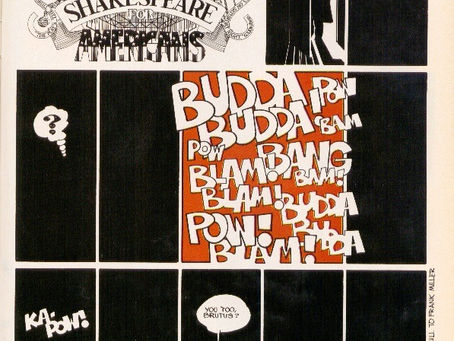 SHAKESPEARE
FOR
AMERICANS
?
BUDDA POW
BUDDA BAM
POW BANG
BLAM! BAM!
BLAM! BUDDA
POW! BUDDA
BLAM!
KA-
POW!
YOU TOO,
BRUTUS?
TO FRANK MILLER